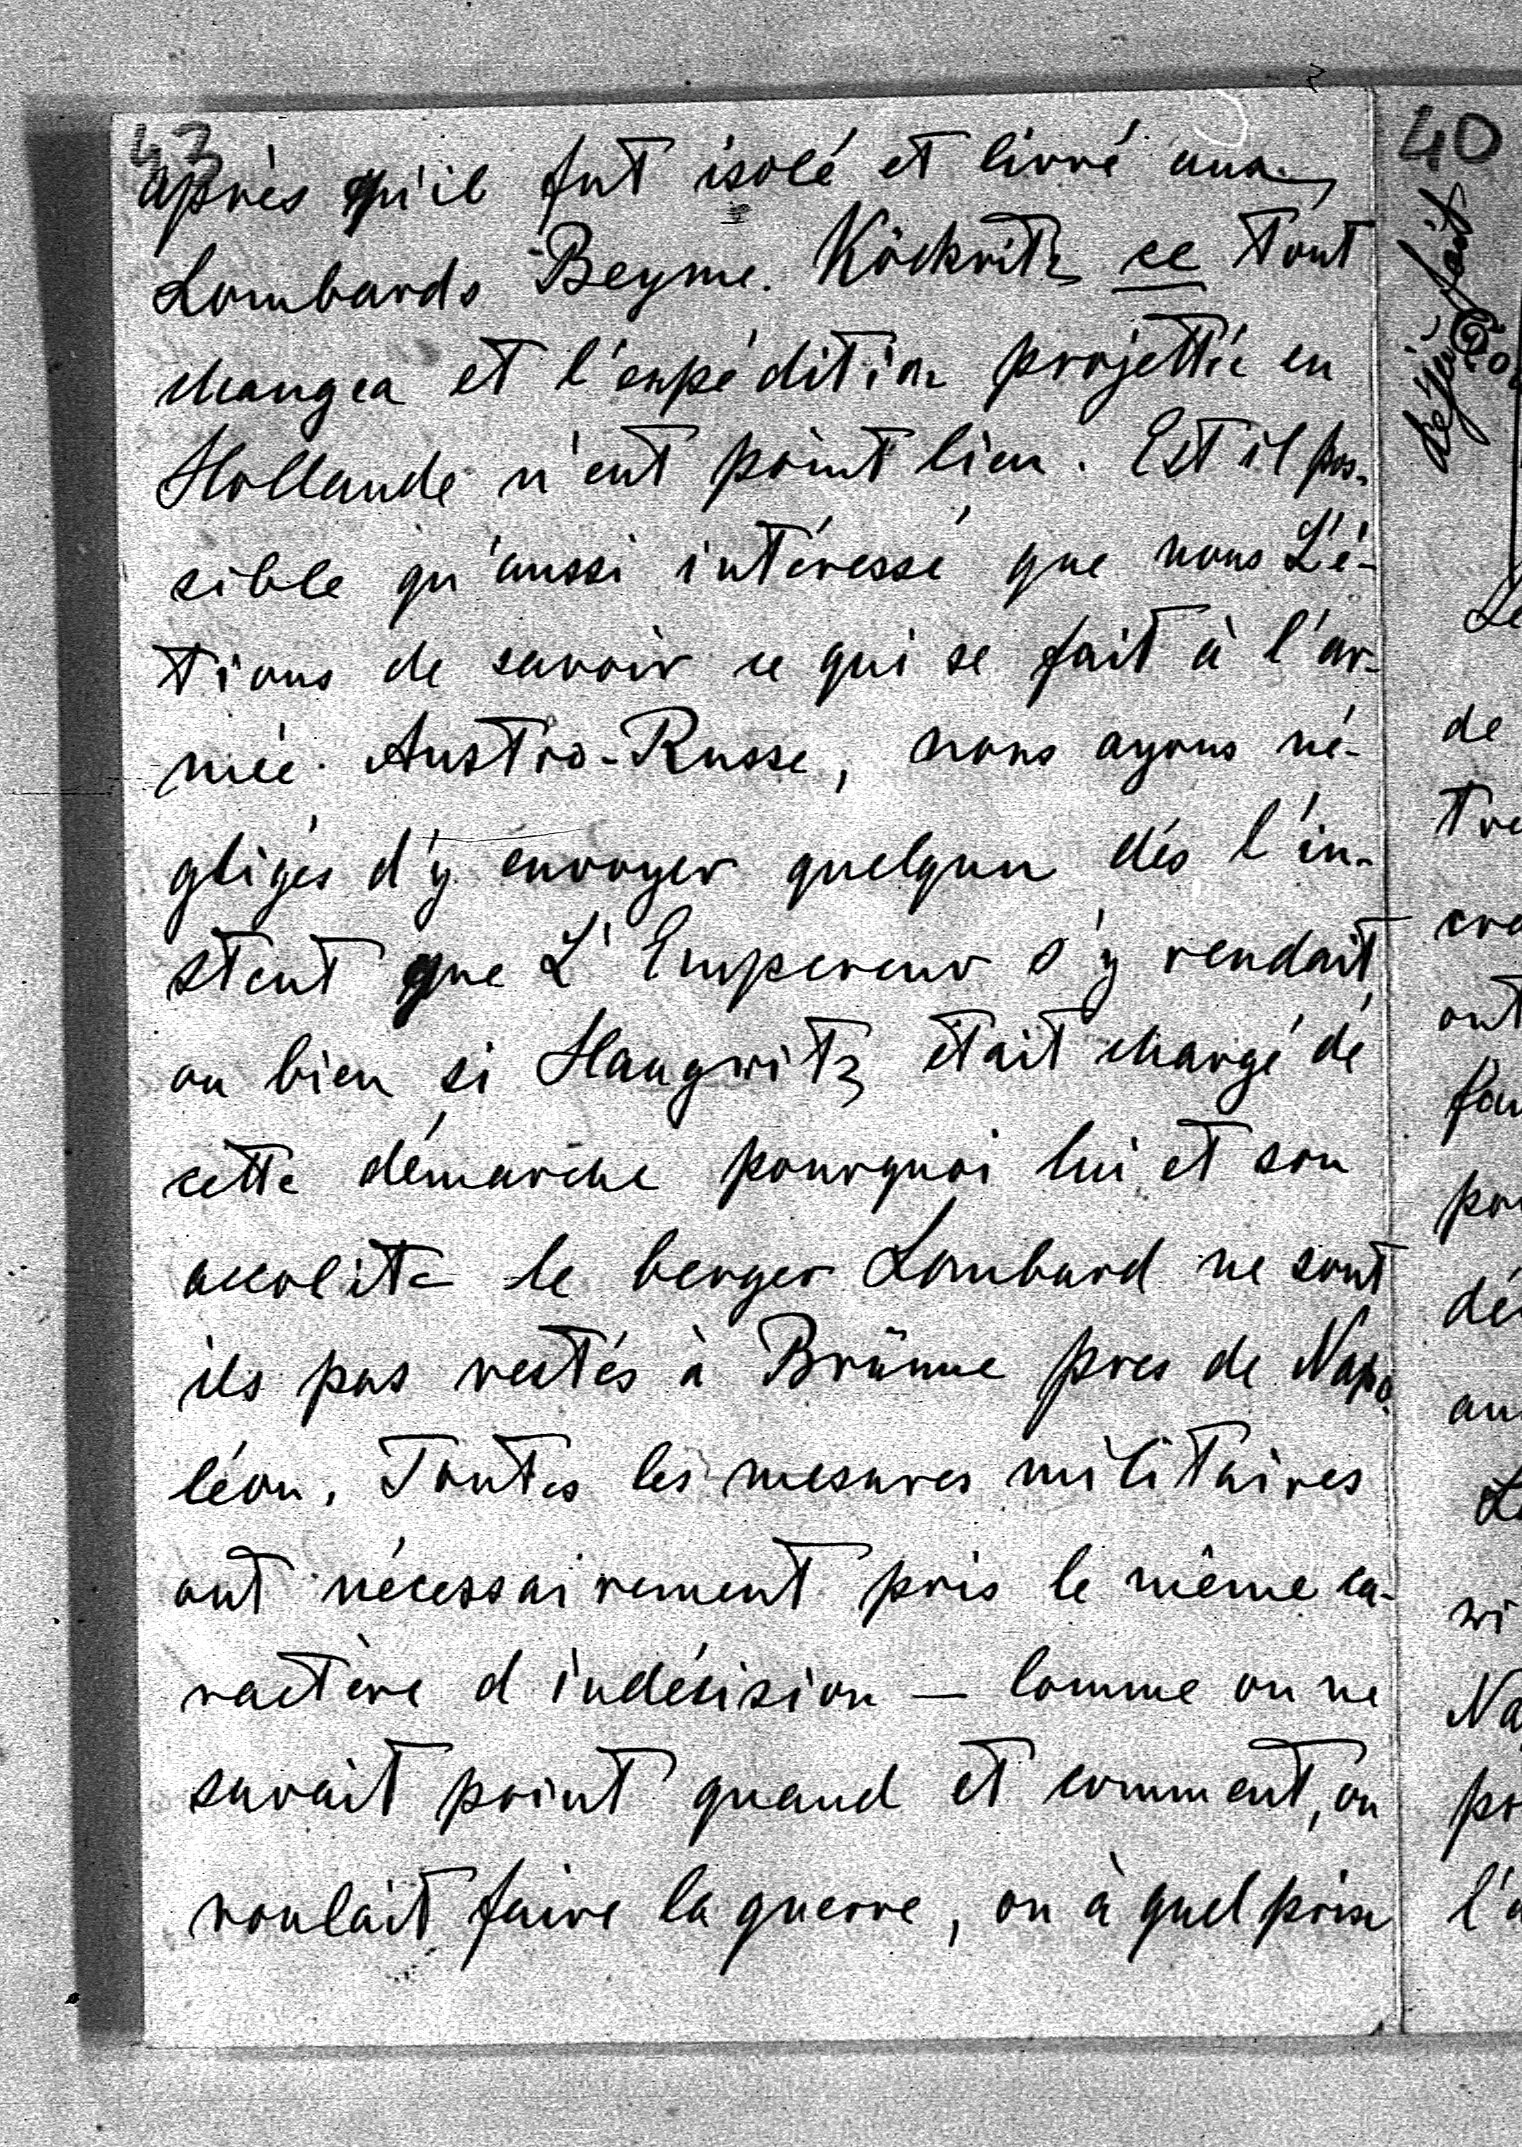 43
après qu'il fut isolé et livré aux
Lombards Beyme. Köckritz cc tout
changea et l'expédition projettée en
Hollande n'eut point lieu. Est il pos-
sible qu'aussi intéressé que nous L'é-
tions de savoir ce qui se fait à l'ar-
mée Austro-Russe, nous ayons né-
gligés d'y envoyer quelqun dés l'in-
stent que L'Empereur s'y rendait
ou bien si Haugwitz était chargé de
cette démarche pourquoi lui et son
accolite le berger Lombard ne sont
ils pas restés à Brünne pres de Napo-
léon. Toutes les mesures militaires
ont nécessairement pris le même ca-
ractère d'indécision — comme on ne
savait point quand et comment, on
voulait faire la guerre, ou à quel prix
40
Le
de
ont
Na
po
l'a